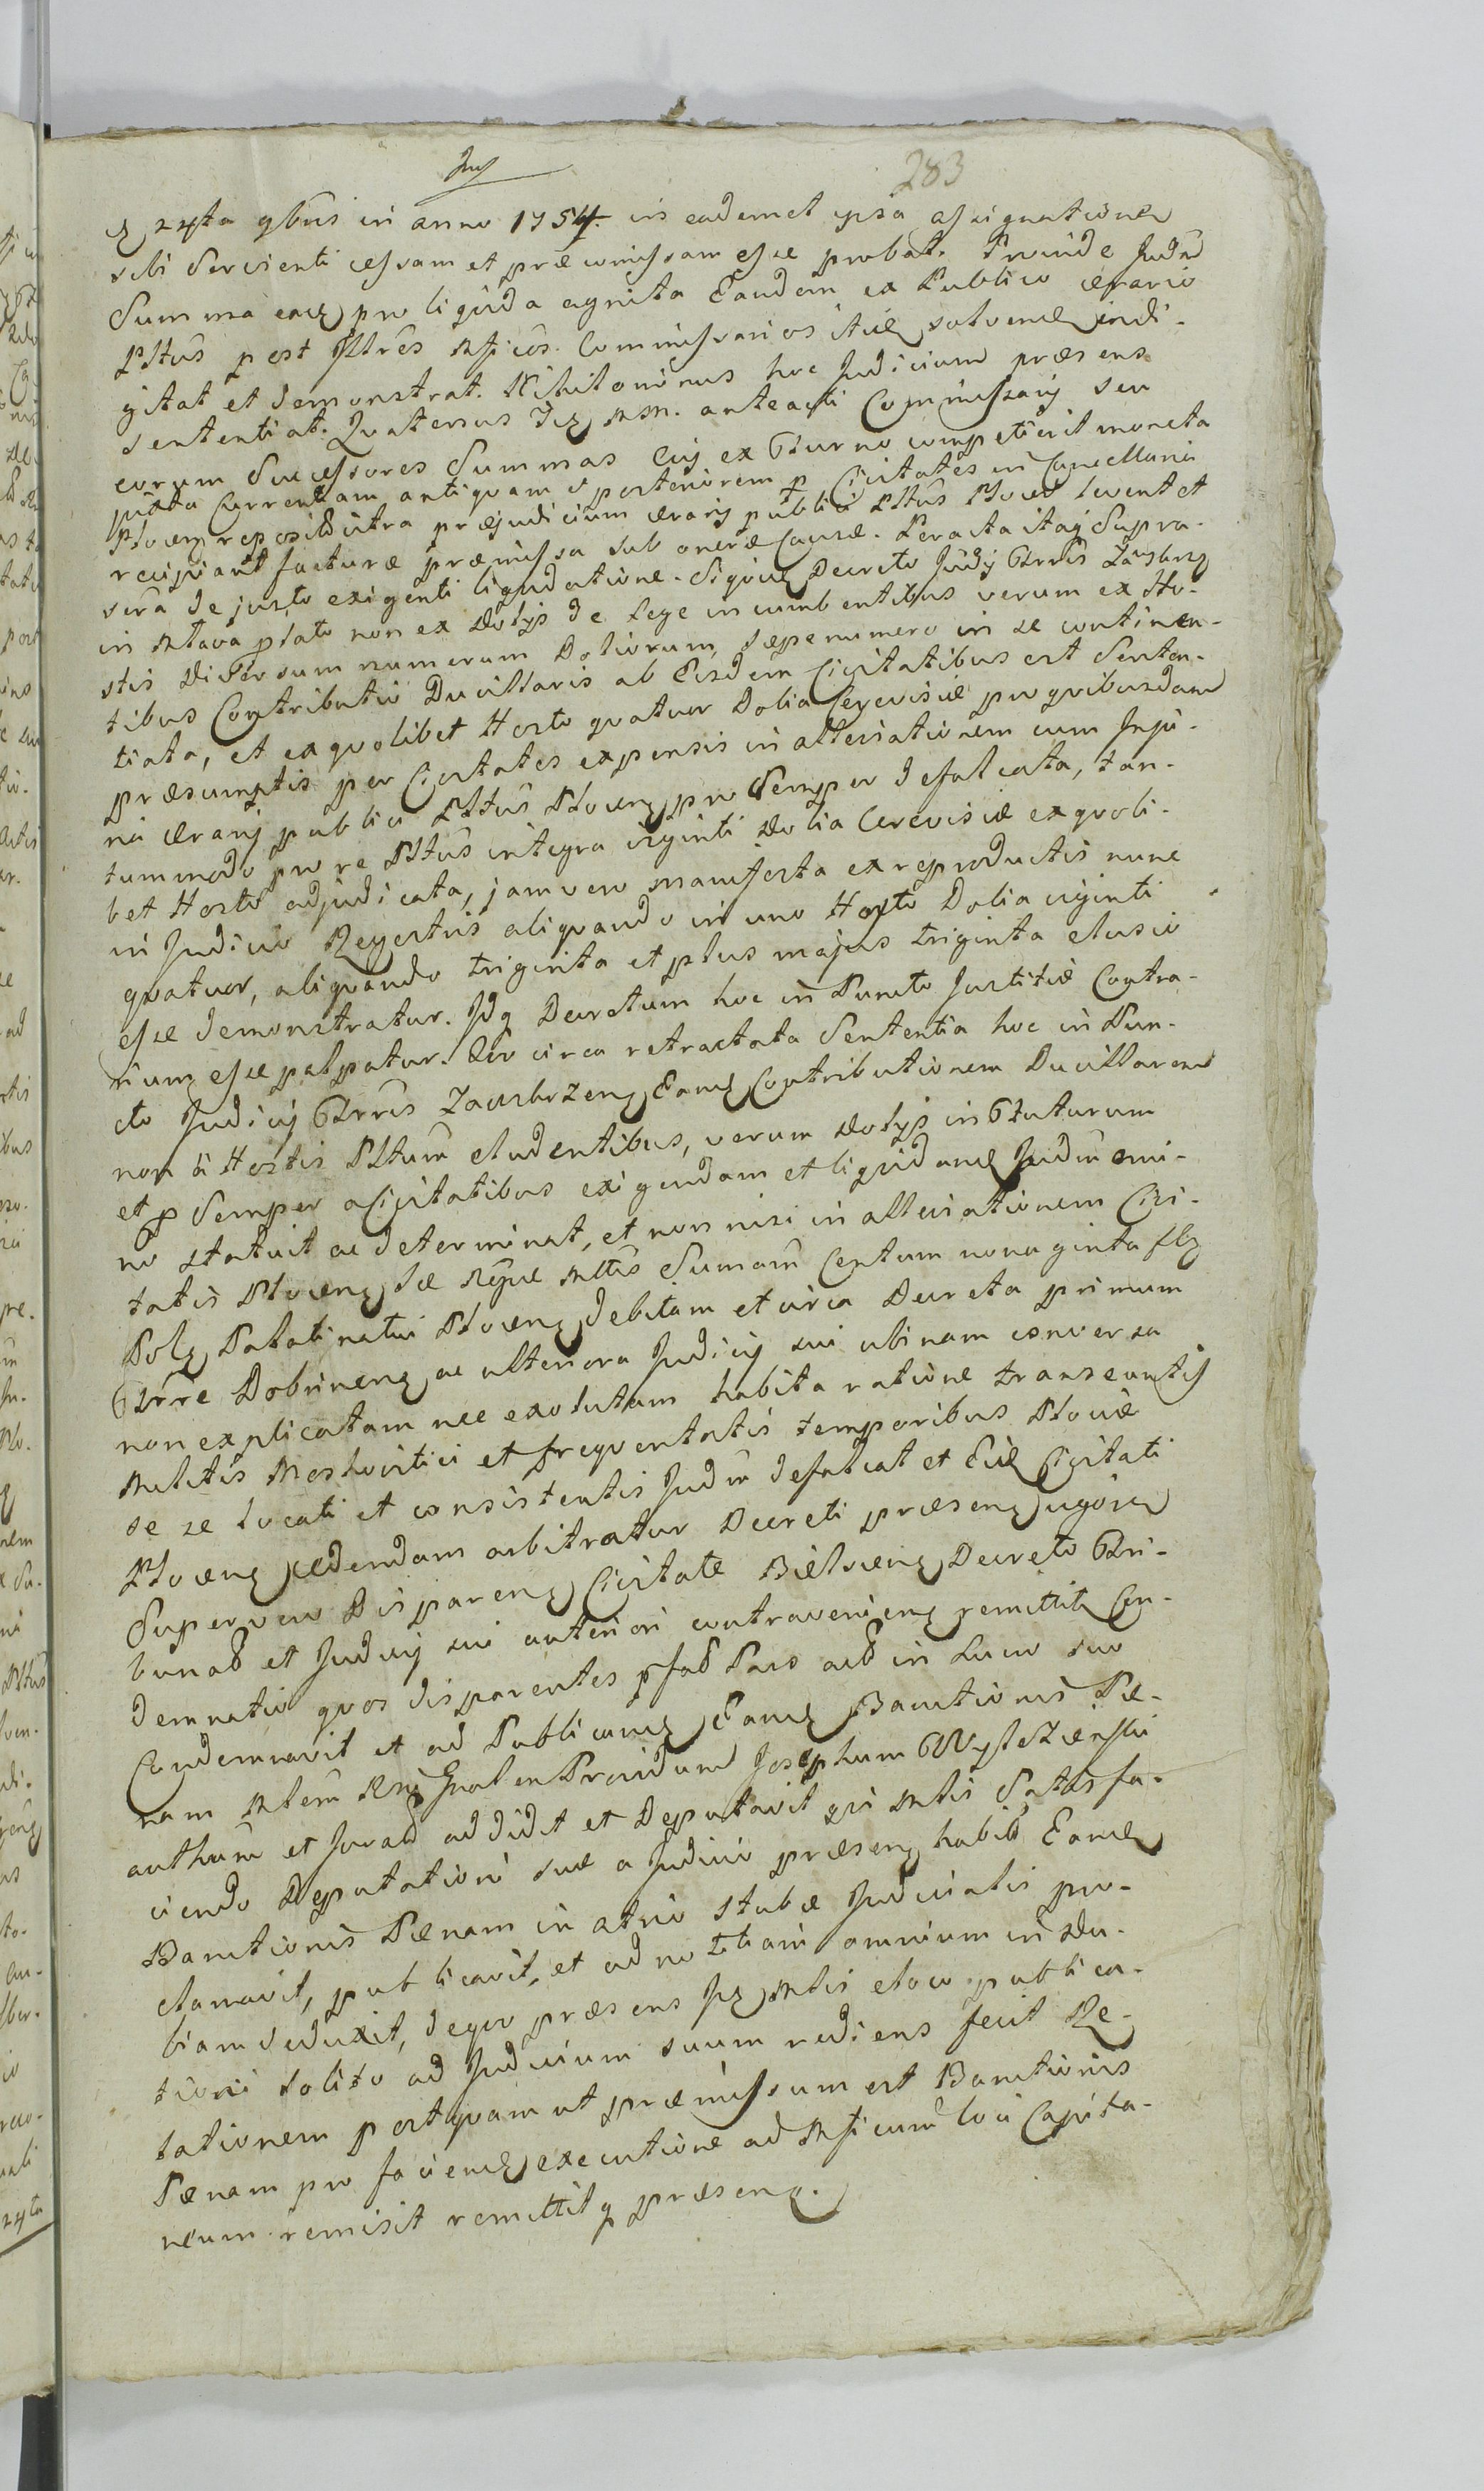 283
24ta 9bris in anno 1754. in eademet ipsa assignatione
sibi servienti cessam et præcomissam esse probat. Proinde Judm
Summa eaq pro liquida agnita Eandem ex Publico ærario
Plttûs post Illres Mficos. Commissarios solvend indi-
gitat et demonstrat. Nihilominus hoc Judicium præsens
sententiat. Quatenus MM. anteacti Commissarij seu
eorum Successores Summas Cuj ex Turno competierit moneta
juxta Currentiam antiquam et posteriorem p Civitates in Cancellaria
Plocen reposit citra præjudicium ærarij publici Plttûs Plocen levent et
recipiant facturæ præmissa sub onere Causæ. Peracta itaq Supra-
de justo exigenti liquidatione. Siquid Decreto Judij Trris Zawkrzen
in Mlava plato non ex Dolijs de lege incumbentibus verum ex Ho-
stis Diversum numerum Doliorum, sæpenumero in se continen-
tibus Contributio Ducillaris ab Eisdem Civitatibus est Senten-
tiata, et ex quolibet Hosto quatuor Dolia Cerevisiæ pro quibusdam
præsumptis per Civitates expensis in alleviationem cum Inju-
ria ærarij publici Plttûs Plocen pro semper defalcata, tan-
tummodo pro re Plttûs integra viginti Dolia Cerevisiæ ex quoli-
bet Hosto adjudicata, jam vero manifesta ex reproductis nunc
in Judicio Regestris aliquando in uno Hosto Dolia viginti
quatuor, aliquando triginta et plus majus triginta elusio
esse demonstratur. Idq Decretum hoc in Puncto Justitiæ Contra-
rium esse palpatur. circa retractata Sententia hoc in Pun-
cto Judicij Trris Zawkrzen Eand Contributionem Ducillarem
non à Hostis Plttum eludentibus, verum Dolijs in futurum
et p Semper a Civitatibus exigendam et liquidand Judm omi-
no statuit ac determinat, et non nisi in alleviationem Civi-
tatis Plocen Sæ Regiæ Mttis Sumam Centum nonaginta flr
Pol Palatinatui Plocen debitam et circa Decreta primum
Trre Dobrinen ac ulteriora Judicij sui ubinam conversa
non explicatam nec exolutam habita ratione transeuntis
Militis Moskovitici et frequentatis temporibus Plociæ
se se locati et consistentis Judm defalcat et Eid Civitati
Plocen cedendam arbitratur Decreti præsen vigore
Super vero Disparen Civitate Bielscen Decreto Tri-
bunal et Judicij sui anteriori contravenien remittit Con-
demnatio quos disparentes Pars in Lucro suo
Condemnavit et ad Publicand Eand Banitionis Pæ-
nam Mlem Regni Gnalem Providum Josephum Wyleziński
authum et Jurat addidit et Deputavit qui Mlis Satisfa-
ciendo Deputationi suæ a Judicio præsen habit Eand
Banitionis Pænam in atrio stubæ Judicialis pro-
clamavit, publicavit, et ad notitiam omnium in Du-
biam deduxit, dequo præsens Mlis eloco publica-
tioni solito ad Judicium suum rediens fecit Re-
lationem postquam ut præmissum est Banitionis
Pænam pro faciend executione ad Mficum loci Capita-
neum remisit remittitq præsen.